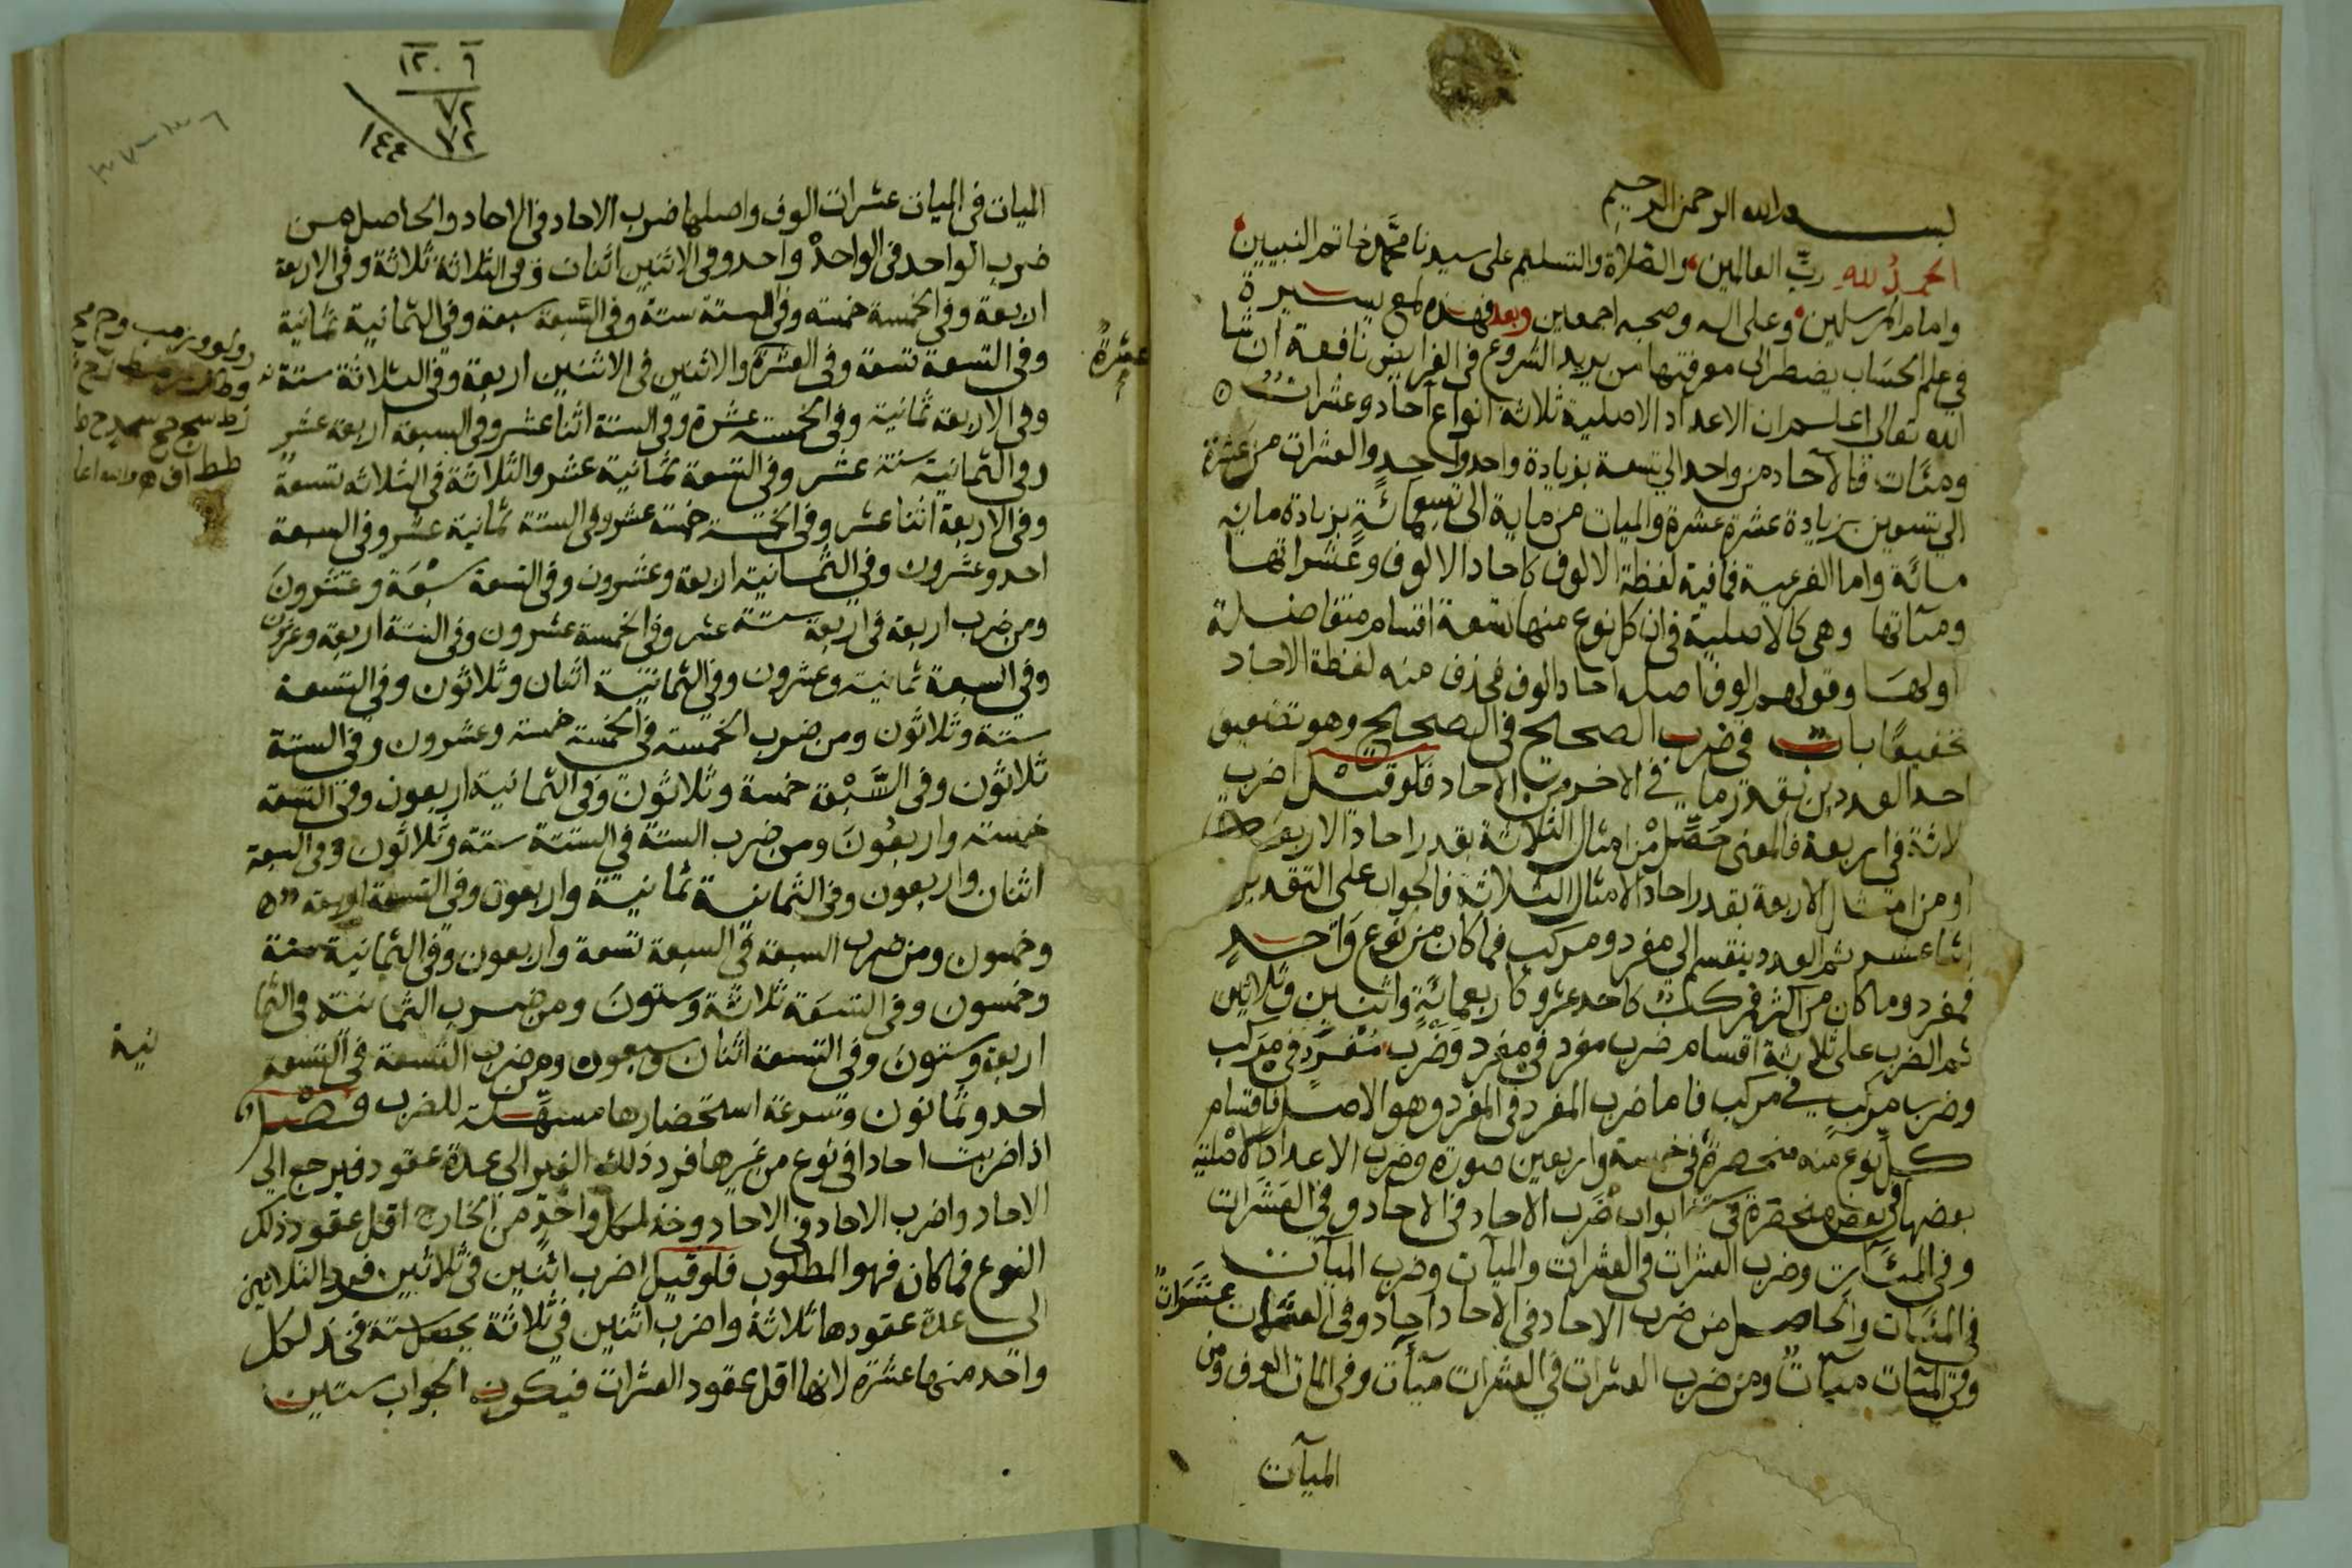 بسم الله الرحمن الرحيم
الحمد لله رب العالمين والصلاة والتسليم على سيدنا محمد خاتم النبيين
وامام المرسلين وعلى اله وصحبه اجمعين وبعد فهذه لمع يسيرة
في علم الحساب يضطر الى معرفتها من يريد الشروع في الفرايض نافعة ان شا
الله تعالى اعلم ان الاعداد الاصلية ثلاثة انواع آحاد وعشرات
ومئات فالآحاد من واحد الي تسعة بزيادة واحد واحد والعشرات من عشرة
الي تسعين بزيادة عشرة عشرة والميات من ماية الى تسعمائة بزيادة مائة
مائة واما الفرعية فما فيه لفظة الالوف كاحاد الالوف وعشراتها
ومئاتها وهي كالاصلية في ان كل نوع منها تسعة اقسام متفاضلة
اولها وقولهم الوف اصله احاد الوف فحذف منه لفظة الاحاد
تخفيفا باب في ضرب الصحاح في الصحاح وهو تضعيف
احد العددين بقدر ما في الاخر من الاحاد فلو قيل اضرب
لاثة في اربعة فالمعنى حصل من امثال الثلاثة بقدر احاد الاربعة
او من امثال الاربعة بقدر احاد الامثال الثلاثة فالجواب على التقدير
اثنا عشر ثم العدد ينقسم الي مفرد ومركب فما كان من نوع واحد
فمفرد وما كان من اكثر فمركب كاحد عشر وكاربعمائة واثنين وثلاثين
ثم الضرب على ثلاثة اقسام ضرب مفرد في مفرد وضرب مفرد في مركب
وضرب مركب في مركب فاما ضرب المفرد في المفرد وهو الاصل فاقسام
كل نوع منه منحصرة في خمسة واربعين صورة وضرب الاعداد الاصلية
بعضها في بعض منحصرة في ستة ابواب ضرب الاحاد في الاحاد وفي العشرات
وفي المئات وضرب العشرات في العشرات والميآت وضرب الميآت
في المئات والحاصل من ضرب الاحاد في الاحاد احاد وفي العشرات عشرات
وفي المئات ميآت ومن ضرب العشرات في العشرات ميآت وفي المات الوف ومن
الميآت
٦ ١٢٠
٧٢
٧٢
١٤٤
الميات في الميات عشرات الوف واصلها ضرب الاحاد في الاحاد والحاصل من
ضرب الواحد في الواحد واحد وفي الاثنين اثنان وفي الثلاثة ثلاثة وفي الاربعة
اربعة وفي الخمسة خمسة وفي الستة ستة وفي السبعة سبعة وفي الثمانية ثمانية
وفي التسعة تسعة وفي العشرة والاثنين في الاثنين اربعة وفي الثلاثة ستة
عشرة
وفي الاربعة ثمانية وفي الخمسة عشرة وفي الستة اثنا عشر وفي السبعة اربعة عشر
وفي الثمانية ستة عشر وفي التسعة ثمانية عشر والثلاثة في الثلاثة تسعة
وفي الاربعة اثنا عشر وفي الخمسة خمسة عشر وفي الستة ثمانية عشر وفي السبعة
احد وعشرون وفي الثمانية اربعة وعشرون وفي التسعة سبعة وعشرون
ومن ضرب اربعة في اربعة ستة عشر وفي الخمسة عشرون وفي الستة اربعة وعشرون
وفي السبعة ثمانية وعشرون وفي الثمانية اثنان وثلاثون وفي التسعة
ستة وثلاثون ومن ضرب الخمسة في الخمسة خمسة وعشرون وفي الستة
ثلاثون وفي السبعة خمسة وثلاثون وفي الثمانية اربعون وفي التسعة
خمسة واربعون ومن ضرب الستة في الستة ستة وثلاثون وفي السبعة
اثنان واربعون وفي الثمانية ثمانية واربعون وفي التسعة اربعة
وخمسون ومن ضرب السبعة في السبعة تسعة واربعون وفي الثمانية ستة
وخمسون وفي التسعة ثلاثة وستون ومن ضرب الثمانية في الثما
نية
اربعة وستون وفي التسعة اثنان وسبعون ومن ضرب التسعة في التسعة
احد وثمانون وسرعة استحضارها مسهلة للضرب فصل
اذا ضربت احادا في نوع من غيرها فرد ذلك الغير الى عدة عقود فيرجع الي
الاحاد واضرب الاحاد في الاحاد وخذ لكل واحد من الخارج اقل عقود ذلك
النوع فما كان فهو المطلوب فلو قيل اضرب اثنين في ثلاثين فرد الثلاثين
الي عدة عقودها ثلاثة واضرب اثنين في ثلاثة يحصل ستة فخذ لكل
واحد منها عشرة لانها اقل عقود العشرات فيكون الجواب ستين